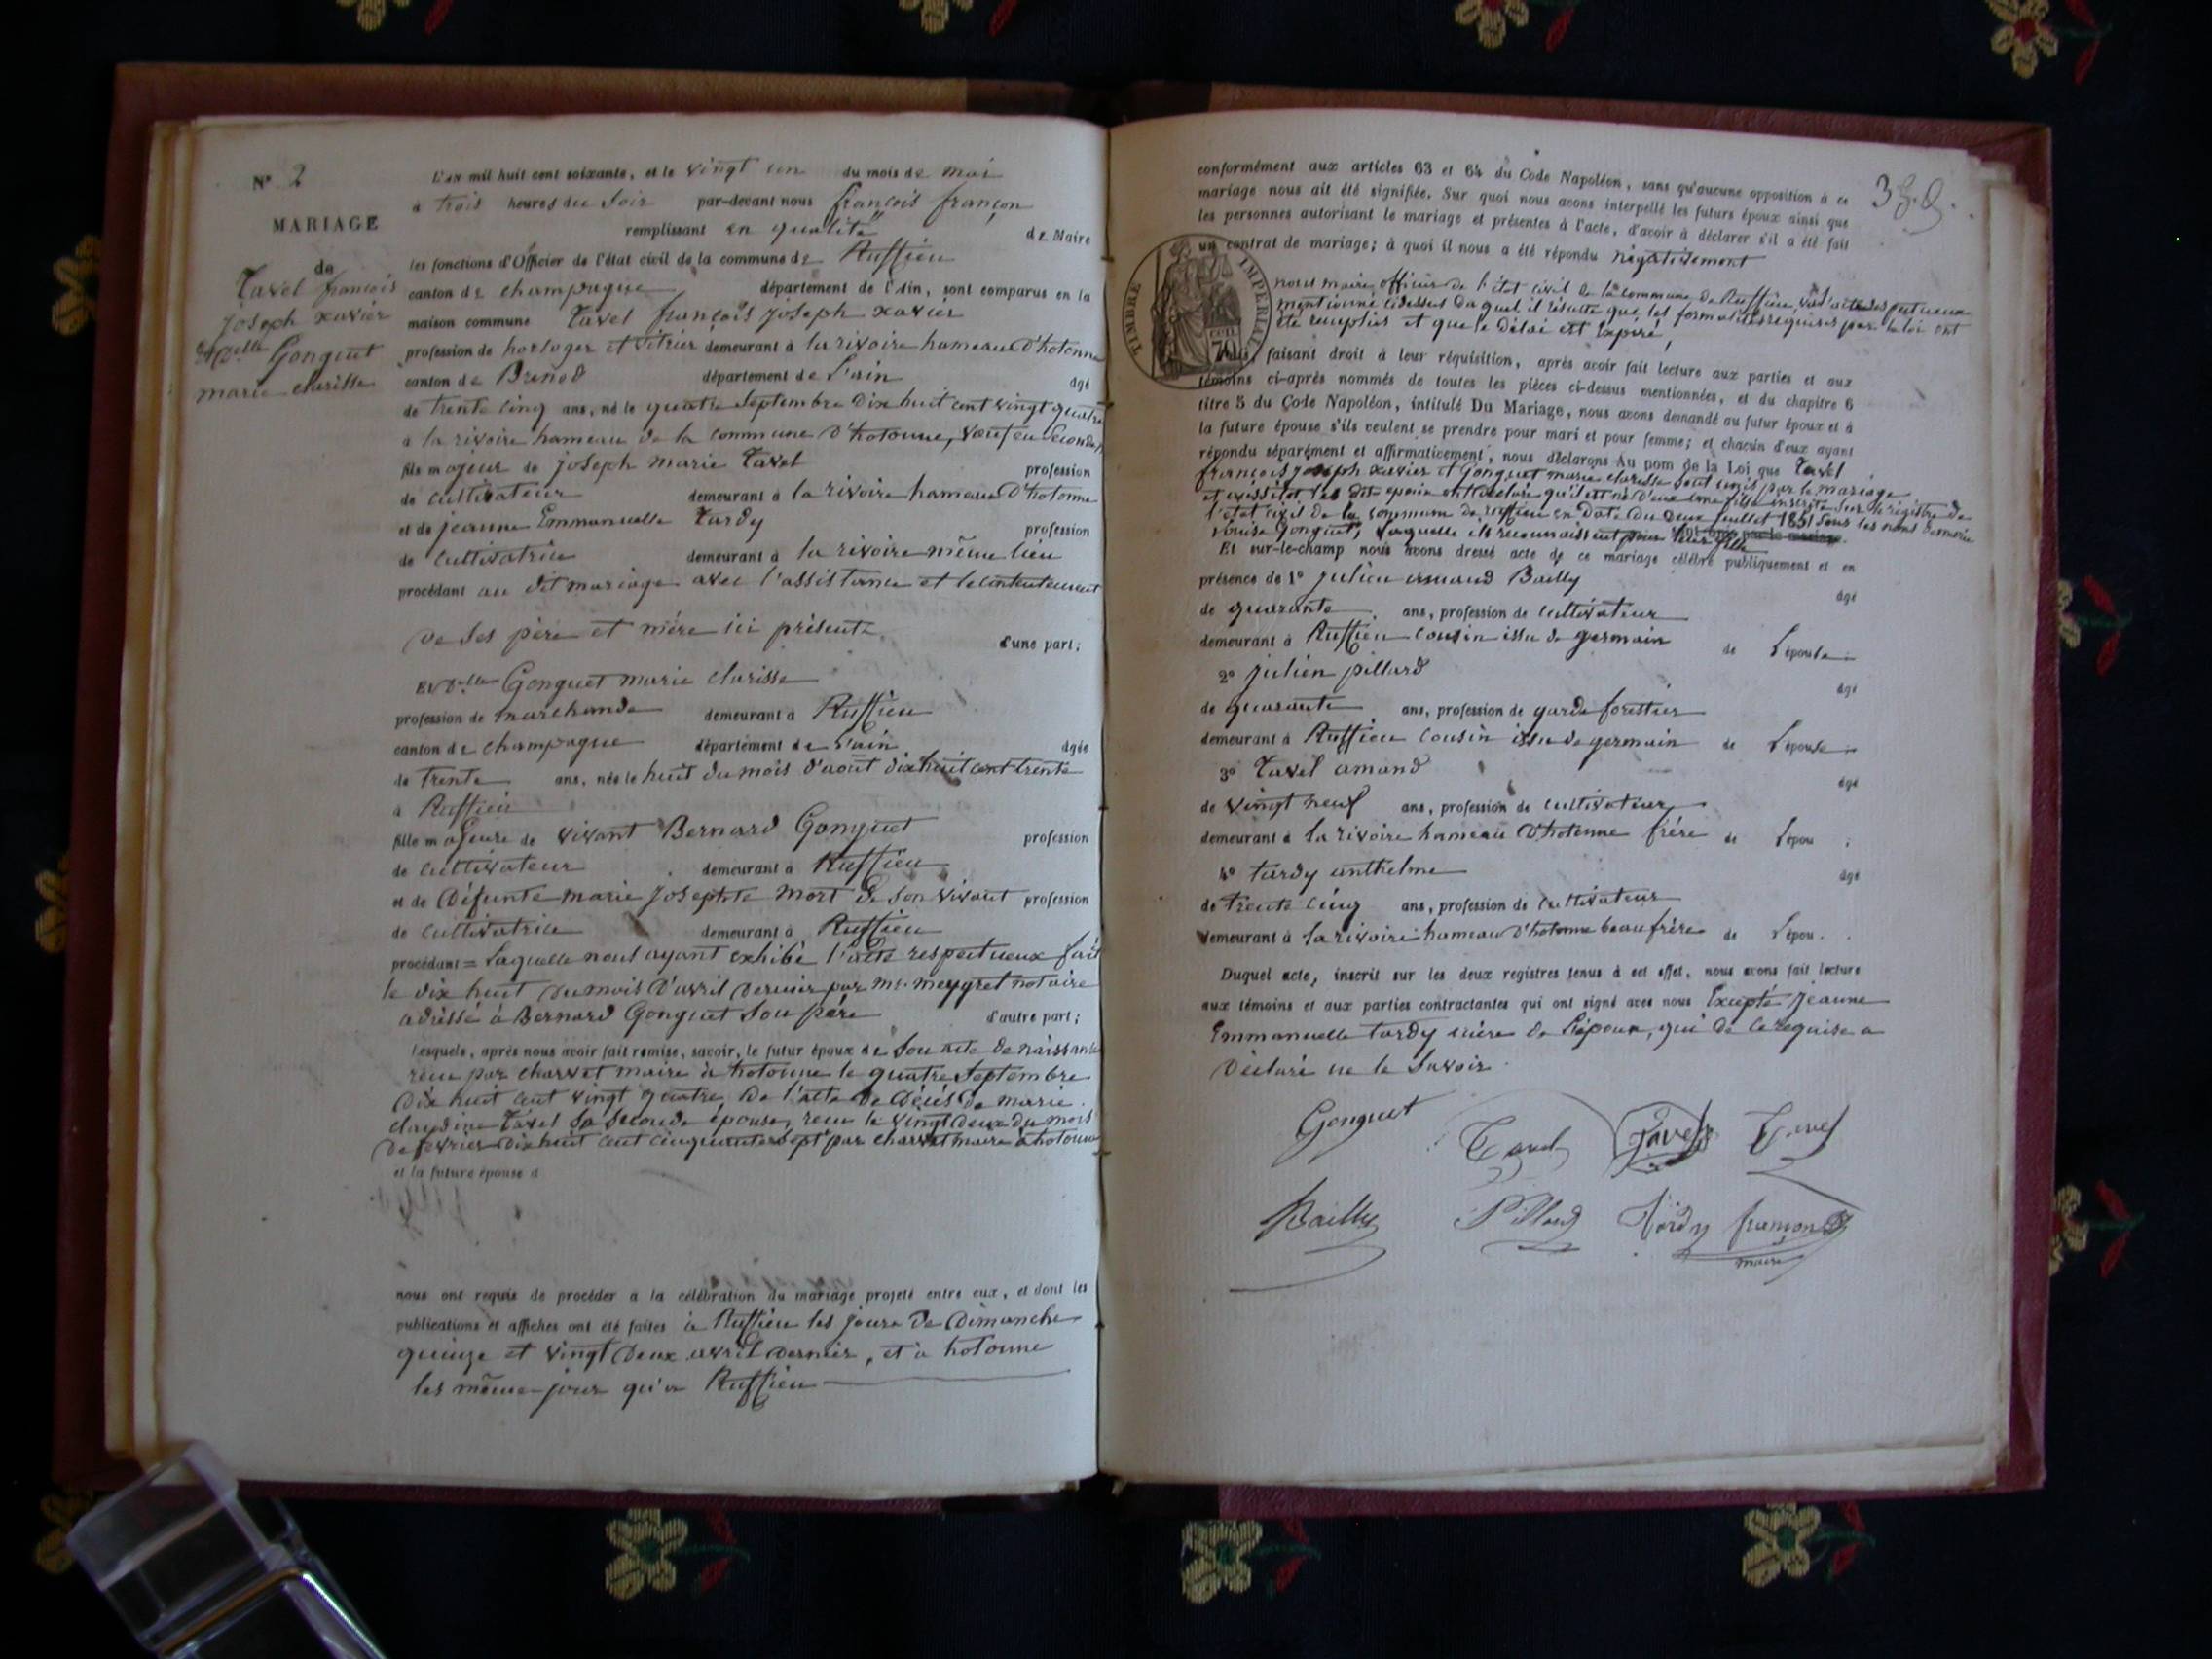 N° 2
MARIAGE
de
Tavel françois
Joseph xavier
et Delle Gonguet
marie clarisse
L'an mil huit cent soixante, et le vingt un du mois de mai
à trois heures du soir par-devant nous françois françon
remplissant en qualité de Maire
les fonctions d'Officier de l'état civil de la commune de Ruffieu
canton de champagne département de l'Ain, sont comparus en la
maison commune Tavel françois Joseph xavier
profession de horloger et vitrier demeurant à la rivoire hameau d'hotonne
canton de Brénod département de l'ain âgé
de trente cinq ans, né le quatre septembre dix huit cent vingt quatre
à la rivoire hameau de la commune d'hotonne, veuf en seconde
fils majeur de joseph marie Tavel profession
de cultivateur demeurant à la rivoire hameau d'hotonne
et de jeanne Emmanuelle Tardy profession
de cultivatrice demeurant à la rivoire même lieu
procédant au dit mariage avec l'assistance et le contentement
de ses père et mère ici présents d'une part;
Et Delle Gonguet marie clarisse
profession de marchande demeurant à Ruffieu
canton de champagne département de l'ain âgée
de trente ans, née le huit du mois d'août dix huit cent trente
à Ruffieu
fille majeure de vivant Bernard Gonguet profession
de cultivateur demeurant à Ruffieu
et de Défunte marie Josephte Mort de son vivant profession
de cultivatrice demeurant à Ruffieu
procédant = Laquelle nous ayant exhibé l'acte respectueux fait
le dix huit du mois d'avril dernier par me. meygret notaire
adréssé à Bernard Gonguet son père d'autre part;
Lesquels, après nous avoir fait remise, savoir, le futur époux de son acte de naissance
recu par charvet maire à hotonne le quatre septembre
dix huit cent vingt quatre, de l'acte de décès de marie
claudine Tavel sa seconde épouse, recu le vingt deux du mois
de fevrier dix huit cent cinquante sept par charvet maire à hotonne
et la future épouse d
nous ont requis de procéder à la célébration du mariage projeté entre eux, et dont les
publications et affiches ont été faites à Ruffieu les jours de Dimanche
quinze et vingt deux avril dernier, et à hotonne
les même jour qu'a Ruffieu
3
conformément aux articles 63 et 64 du Code Napoléon, sans qu'aucune opposition à ce
mariage nous ait été signifiée. Sur quoi nous avons interpellé les futurs époux ainsi que
les personnes autorisant le mariage et présentes à l'acte, d'avoir à déclarer s'il a été fait
un contrat de mariage; à quoi il nous a été répondu négativement
TIMBRE IMPERIAL
70
nous maire officier de l'état civil de la commune de Ruffieu, vu l'acte respectueux
mentionné cidessus duquel il résulte que les formalités réquises par la loi ont
été remplies et que le délai est expiré,
faisant droit à leur réquisition, après avoir fait lecture aux parties et aux
témoins ci-après nommés de toutes les pièces ci-dessus mentionnées, et du chapitre 6
titre 5 du Code Napoléon, intitulé Du Mariage, nous avons demandé au futur époux et à
la future épouse s'ils veulent se prendre pour mari et pour femme; et chacun d'eux ayant
répondu séparément et affirmativement, nous déclarons Au nom de la Loi que Tavel
françois joseph xavier et Gonguet marie clarisse sont unis par le mariage
et aussitôt les dits époux ont déclaré qu'il est né d'eux une fille inscrite sur le registre de
l'état civil de la commune de ruffieu en date du deux juillet 1851 sous les noms de marie
louise Gonguet, laquelle ils reconnaissent pour leur fille
Et sur-le-champ nous avons dressé acte de ce mariage célébré publiquement et en
présence de 1° julien armand Bailly âgé
de quarante ans, profession de cultivateur
demeurant à Ruffieu cousin issu de germain de l'épouse
2° julien pillard âgé
de quarante ans, profession de garde forestier
demeurant à Ruffieu cousin issu de germain de l'épouse
3° Tavel amand âgé
de vingt neuf ans, profession de cultivateur
demeurant à la rivoire hameau d'hotonne frère de l'épou ;
4° tardy anthelme âgé
de trente cinq ans, profession de cultivateur
demeurant à la rivoire hameau d'hotonne beau frère de l'épou .
Duquel acte, inscrit sur les deux registres tenus à cet effet, nous avons fait lecture
aux témoins et aux parties contractantes qui ont signé avec nous Excepté jeanne
Emmanuelle tardy mère de l'époux, qui de ce requise a
Déclaré ne le savoir.
Gonguet Tavel Tavel Tavel
Bailly Pillard Tardy françon
maire